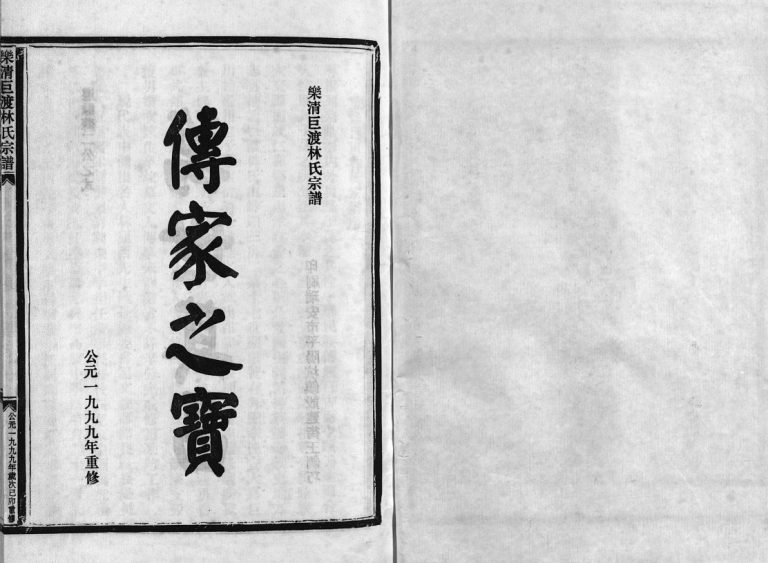 樂清巨渡林氏宗譜
傳家之寶
公元一九九九年重修
樂清巨渡林氏宗譜
公元一九九九年歲次己卯重修